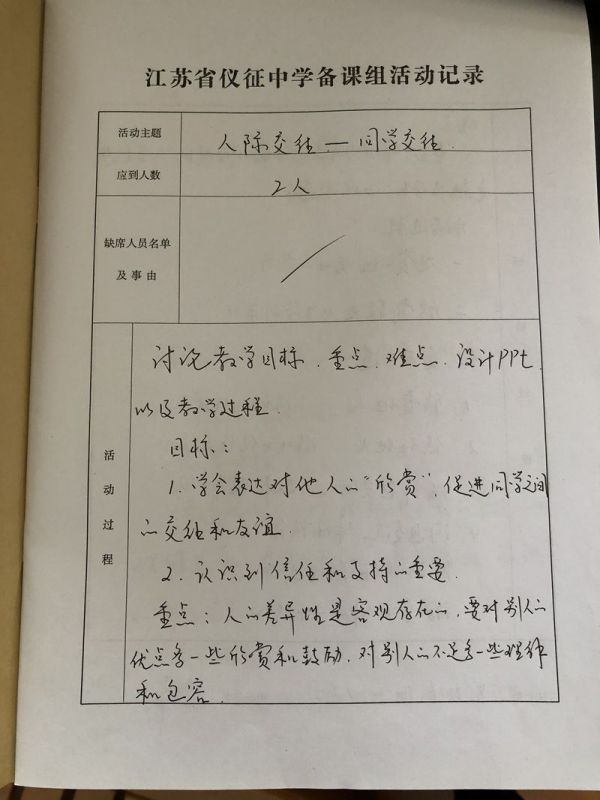 江苏省仪征中学备课组活动记录
活动主题
人际交往—同学交往.
应到人数
2人
缺席人员名单
及事由
活动过程
讨论教学目标、重点、难点、设计PPt,
以及教学过程.
目标:
1. 学会表达对他人的“欣赏”, 促进同学之间
的交往和友谊.
2. 认识到信任和支持的重要.
重点: 人的差异性是客观存在的, 要对别人的
优点多一些欣赏和鼓励, 对别人的不足多一些理解
和包容.